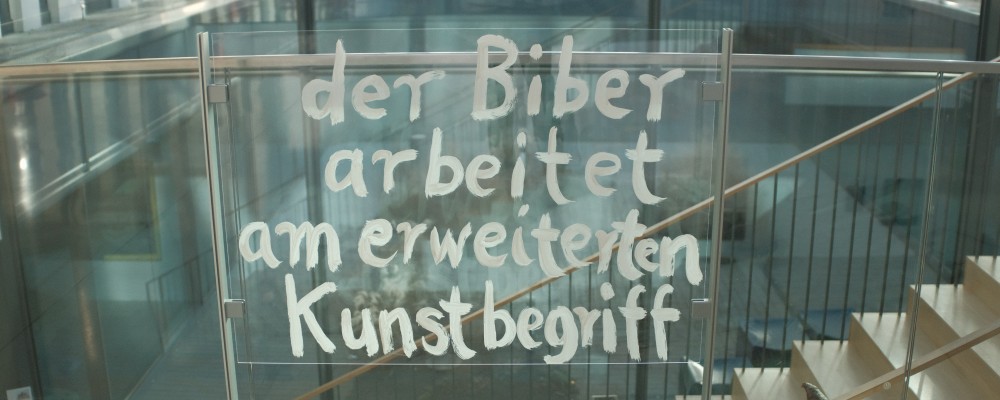 der Biber
arbeitet
am erweiterten
Kunstbegriff